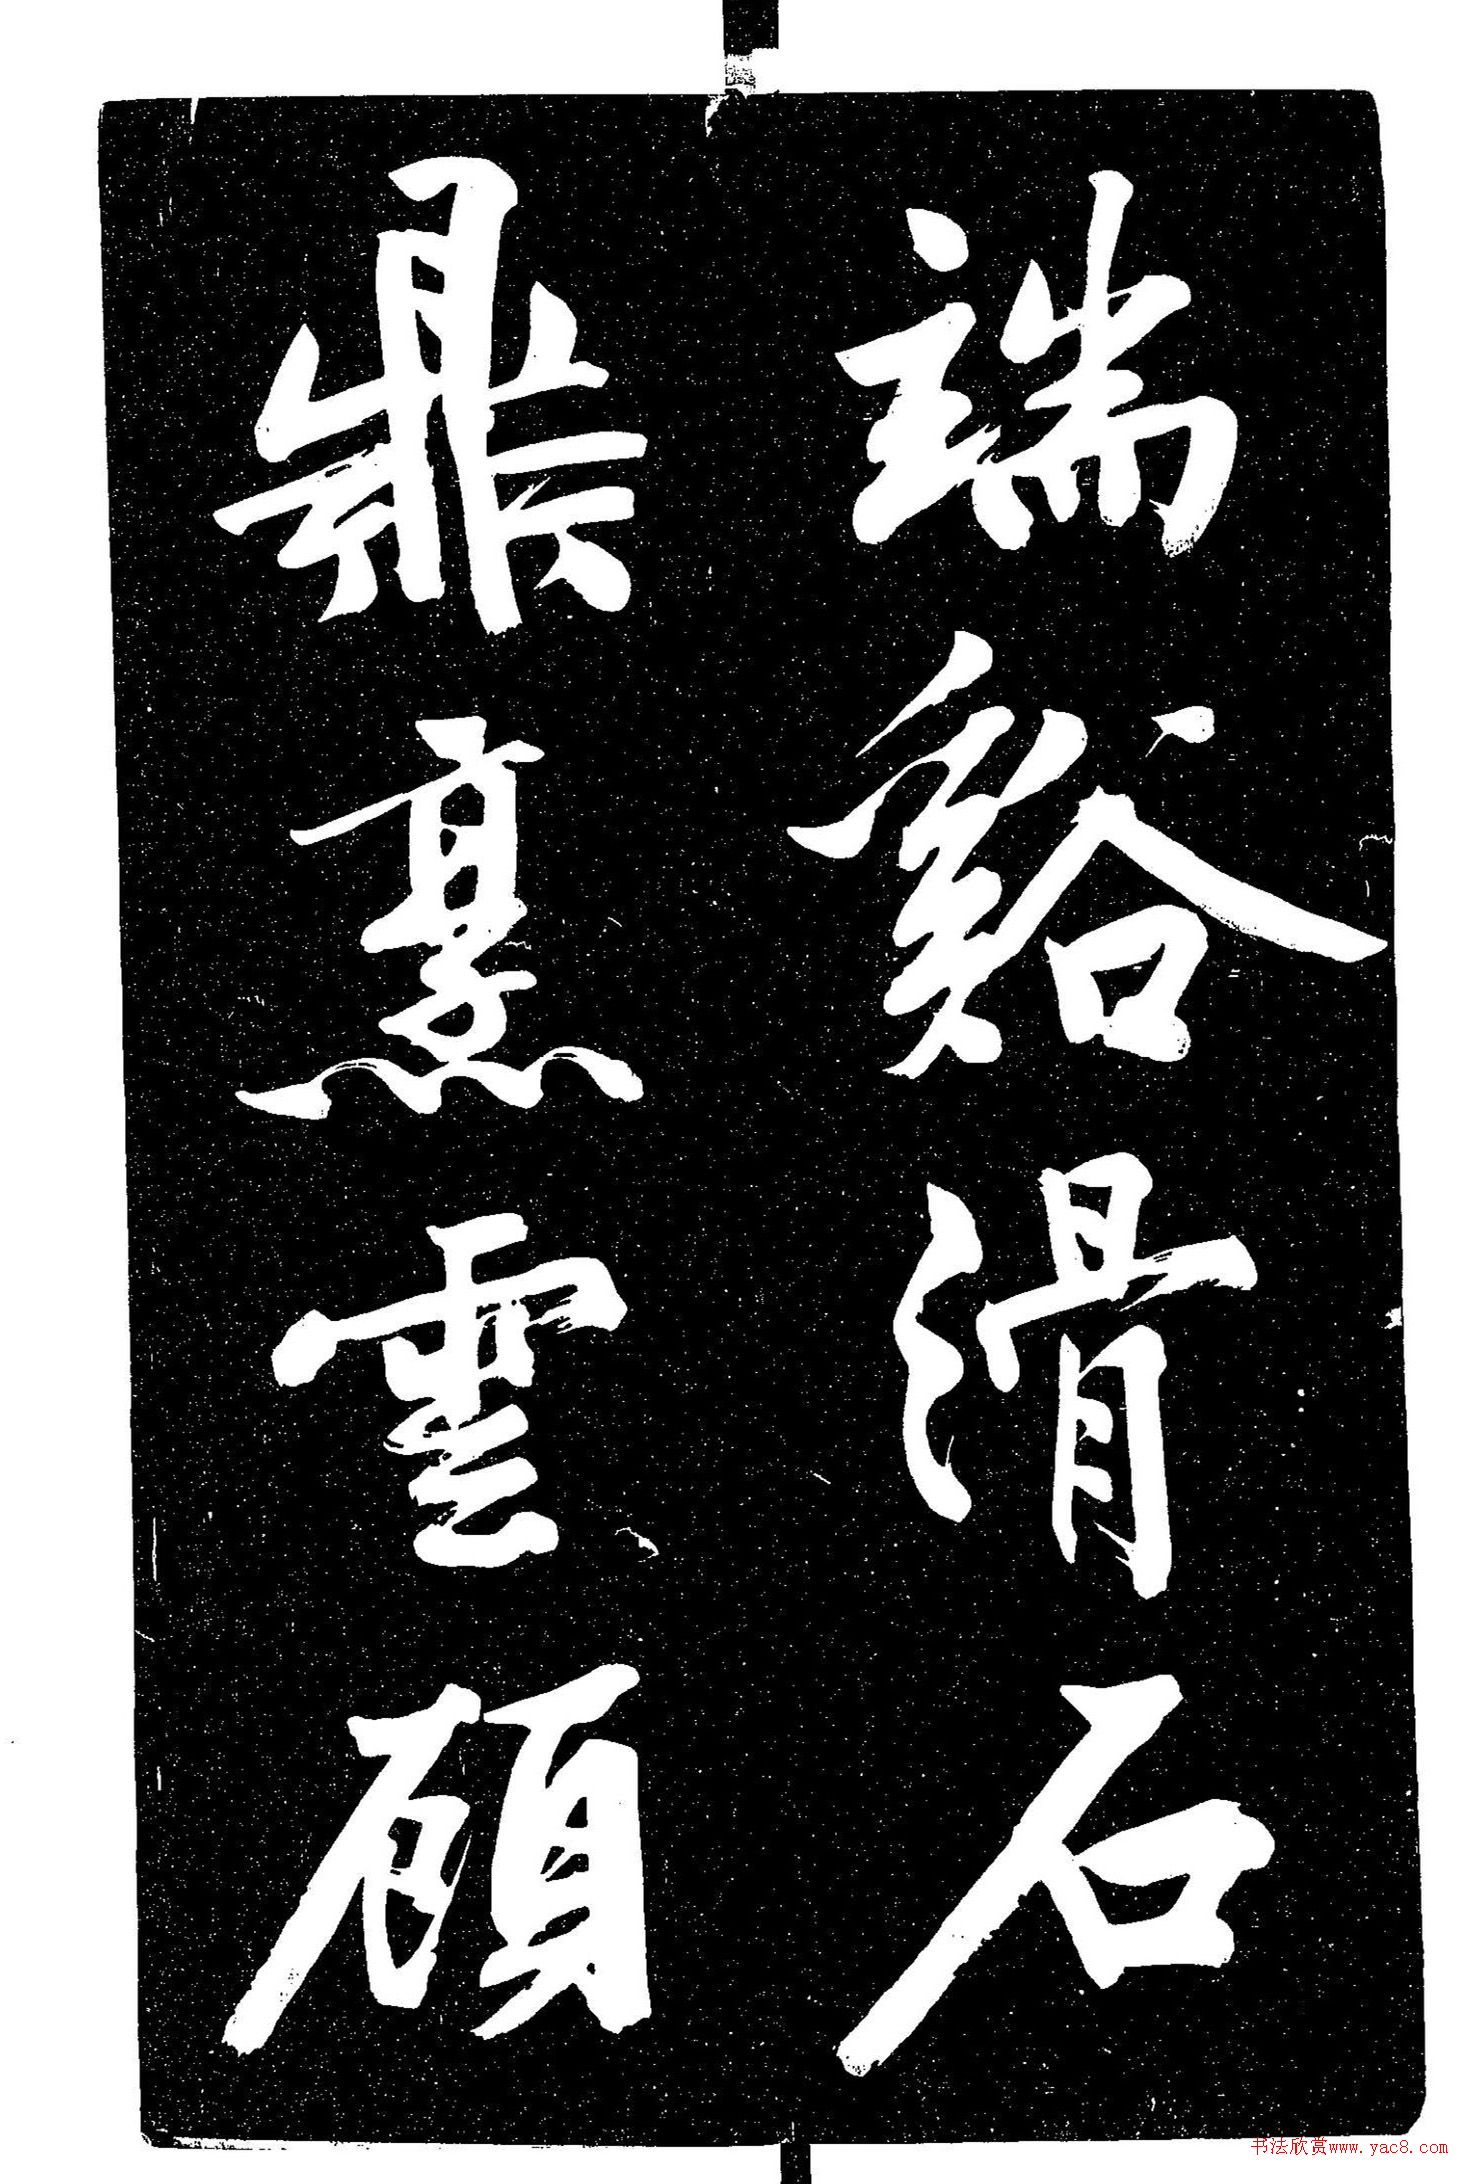 端谿滑石
鼎烹雲頋
书法欣赏www.yac8.com